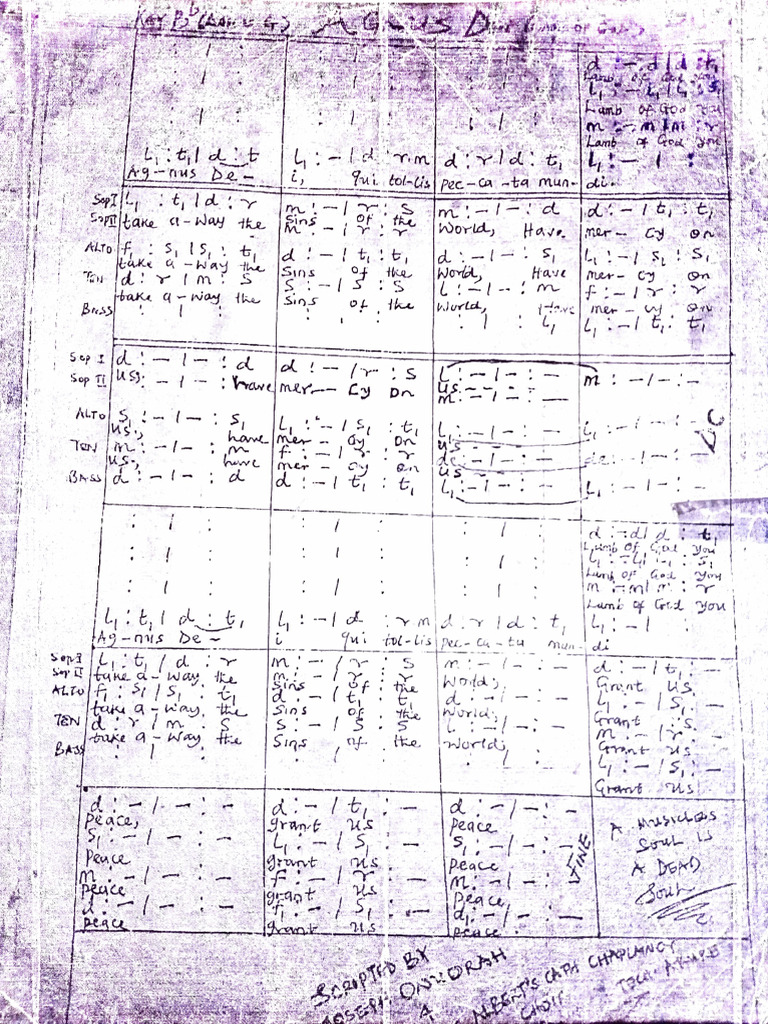 KEY Bb (LAH is G) AGNUS DEI (Lamb of God)
: | : : | : : | : d : - d | d : t₁
Lamb of God You
: | : : | : : | : L₁ : - L₁ | L₁ : S₁
Lamb of God You
: | : : | : : | : m : - m | m : r
Lamb of God You
L₁ : t₁ | d : t L₁ : - | d : r m d : r | d : t₁ L₁ : - | :
Ag-nus De- i, qui tol-lis pec-ca-ta mun- di.
Sop I L₁ : t₁ | d : r m : - | r : S m : - | - : d d : - | t₁ : t₁
take a-way the Sins of the World, Have mer- cy on
Sop II m : - | r : r
ALTO f : S₁ | S₁ : t₁ d : - | t₁ : t₁ d : - | - : S₁ L₁ : - | S₁ : S₁
take a-way the Sins of the World, Have mer- cy on
TEN d : r | m : S S : - | S : S L : - | - : m f : - | r : r
take a-way the Sins of the World, Have mer-cy on
BASS : | : : | : : | : L₁ L₁ : - | t₁ : t₁
Sop I d : - | - : d d : - | r : S L : - | - : - m : - | - : -
Sop II us, : - | - : have mer- cy on us
m : - | - : -
ALTO S₁ : - | - : S₁ L₁ : - | S₁ : t₁ L₁ : - | - : - L₁ : - | - : -
us, have mer- cy on us
TEN m : - | - : m f : - | r : r de : - | - : - de : - | - : -
us, have mer- cy on us
BASS d : - | - : d d : - | t₁ : t₁ L₁ : - | - : - L₁ : - | - : -
DC
: | : : | : : | : d : - d | d : t₁
Lamb Of God You
: | : : | : : | : L₁ : - L₁ | - : S₁
Lamb of God You
: | : : | : : | : m : - m | m : r
Lamb of God You
L₁ : t₁ | d : t₁ L₁ : - | d : r m d : r | d : t₁ L₁ : - |
Ag-nus De- i qui tol-lis pec-ca-ta mun- di
Sop I L₁ : t₁ | d : r m : - | r : S m : - | - : - d : - | t₁ : -
Sop II take a-way the m : - | r : r World, Grant us
Sins of the
ALTO f₁ : S₁ | S₁ : t₁ d : - | t₁ : t₁ d : - | - : - L₁ : - | S₁ : -
take a-way the Sins of the World, Grant us
TEN d : r | m : S S : - | S : S L : - | - : - m : - | r : -
take a-way the Sins of the World, Grant us
BASS : | : : | : : | : L₁ : - | S₁ : -
Grant us
d : - | - : - d : - | t₁ : - d : - | - : -
peace, grant us peace
S₁ : - | - : - L₁ : - | S₁ : - S₁ : - | - : -
peace grant us peace
m : - | - : - f : - | r : - m : - | - : -
peace grant us peace
d : - | - : - f₁ : - | S₁ : - d₁ : - | - : -
peace grant us peace
FINE
A MUSICLESS
SOUL IS
A DEAD
SOUL
SCRIPTED BY
JOSEPH ONUORAH
ALBERT'S CATH CHAPLANCY
CHOIR